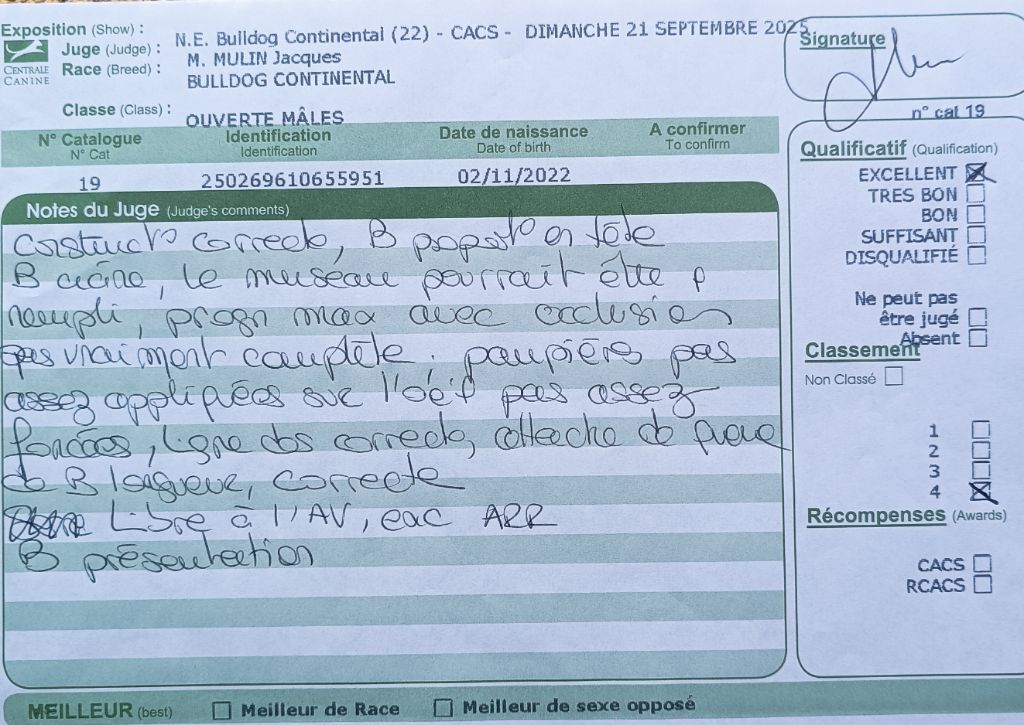 Exposition (Show) : N.E. Bulldog Continental (22) - CACS - DIMANCHE 21 SEPTEMBRE 2025
CENTRALE CANINE
Juge (Judge) : M. MULIN Jacques
Race (Breed) : BULLDOG CONTINENTAL
Classe (Class) : OUVERTE MÂLES
Signature
n° cat 19
N° Catalogue Identification Date de naissance A confirmer
N° Cat Identification Date of birth To confirm
19 250269610655951 02/11/2022
Notes du Juge (Judge's comments)
Constructo correcte, B proporto en tête
B crâne, le museau pourrait être p
rempli, progn max avec occlusion
pas vraiment complète, paupières pas
assez appliquées sur l'oeil pas assez
foncées, ligne dos correcte, attache de queue
de B longueur, correcte
Libre à l'AV, eac ARR
B présentation
Qualificatif (Qualification)
EXCELLENT
TRES BON
BON
SUFFISANT
DISQUALIFIÉ
Ne peut pas
être jugé
Absent
Classement
Non Classé
1
2
3
4
Récompenses (Awards)
CACS
RCACS
MEILLEUR (best) Meilleur de Race Meilleur de sexe opposé